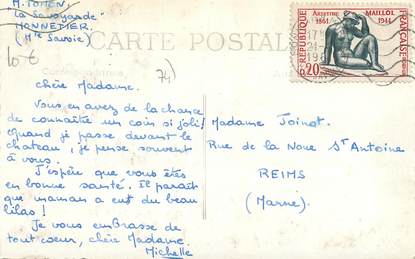 M. TOMEN
"La Savoyarde"
MONNETIER
(Hte Savoie)
10 €
74)
CARTE POSTALE
ARISTIDE MAILLOL
1861 1944
REPUBLIQUE
FRANÇAISE
0.20
POSTES
Chère Madame.
Vous en avez de la chance
de connaître un coin si joli!
Quand je passe devant le
chateau, je pense souvent
à vous.
J'espère que vous êtes
en bonne santé. Il paraît
que maman a eut du beau
lilas!
Je vous embrasse de
tout coeur, chère Madame.
Michelle
Madame Joinot.
Rue de la Noue St Antoine
REIMS
(Marne).